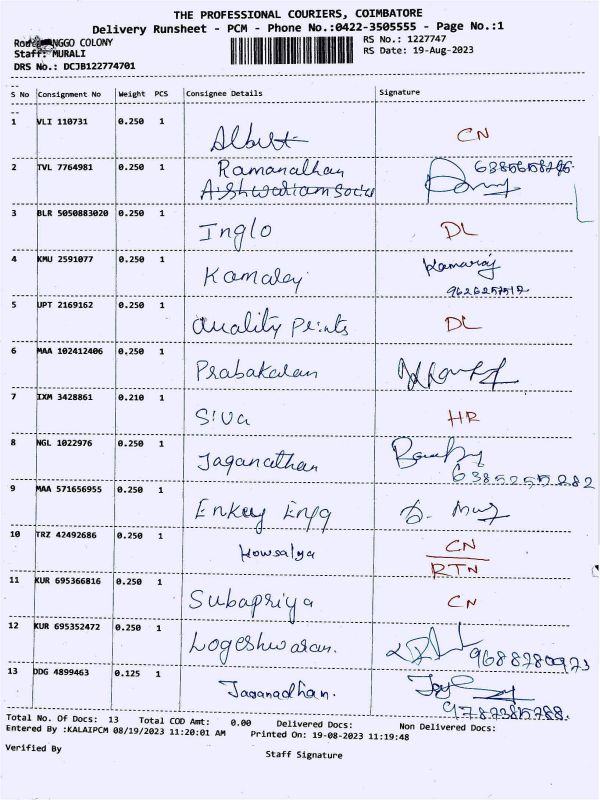 THE PROFESSIONAL COURIERS, COIMBATORE
Delivery Runsheet - PCM - Phone No.:0422-3505555 - Page No.:1
NGGO COLONY
RS No.: 1227747
Staff: MURALI
RS Date: 19-Aug-2023
DRS No.: DCJB122774701
S No Consignment No Weight PCS Consignee Details Signature
1 VLI 110731 0.250 1 Albert CN
2 TVL 7764981 0.250 1 Ramanathan
3 BLR 5050883020 0.250 1 Inglo DL
4 KMU 2591077 0.250 1 Kamaley Kamaraj
9626257512
5 UPT 2169162 0.250 1 Quality Prints DL
6 MAA 102412406 0.250 1 Prabakaran
7 IXM 3428861 0.210 1 Siva HR
8 NGL 1022976 0.250 1 Jaganathan
6385255282
9 MAA 571656955 0.250 1 Enkey Engg
10 TRZ 42492686 0.250 1 Kowsalya CN
RTN
11 KUR 695366816 0.250 1 Subapriya CN
12 KUR 695352472 0.250 1 Logeshwaran. 9688780973
13 DDG 4899463 0.125 1 Jaganadhan.
Total No. Of Docs: 13 Total COD Amt: 0.00 Delivered Docs: Non Delivered Docs:
Entered By :KALAIPCM 08/19/2023 11:20:01 AM Printed On: 19-08-2023 11:19:48
Verified By
Staff Signature